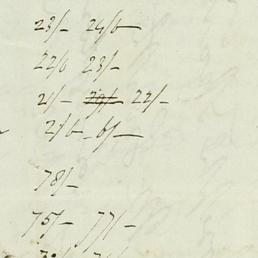 23/- 24/6-
22/6 23/-
21/- 22/-
21/6- 6/-
78/-
75/- 77/-